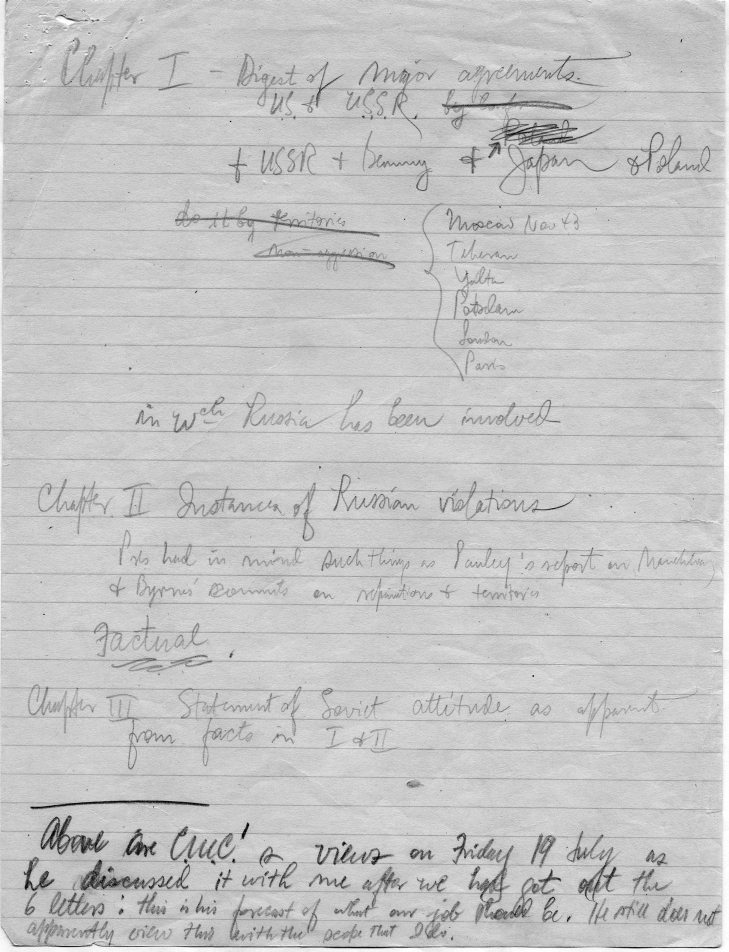 Chapter I – Digest of major agreements.
U.S. & U.S.S.R. by
Poland
& USSR + Germany & Japan & Poland
do it by territories
non-aggression
Moscow Nov 43
Teheran
Yalta
Potsdam
London
Paris
in wch Russia has been involved
Chapter II Instances of Russian violations
Pres had in mind such things as Pauley's report on Manchuria
& Byrnes' comments on reparations & territories
Factual.
Chapter III Statement of Soviet attitude as apparent
from facts in I & II
Above are CMC's views on Friday 19 July as
he discussed it with me after we had got out the
6 letters: this is his forecast of what our job should be. He still does not
apparently view this with the scope that I do.